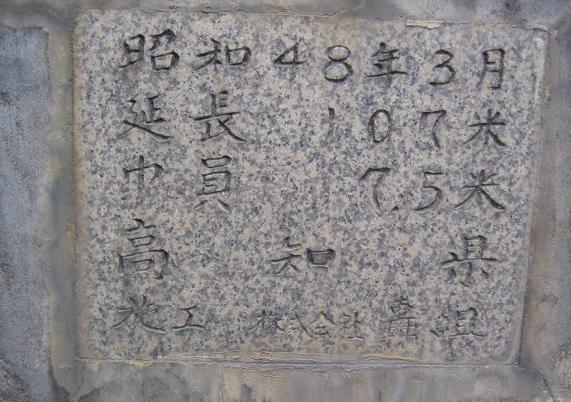 昭和48年3月
延長 107米
巾員 7.5米
高知県
施工 株式会社 轟組